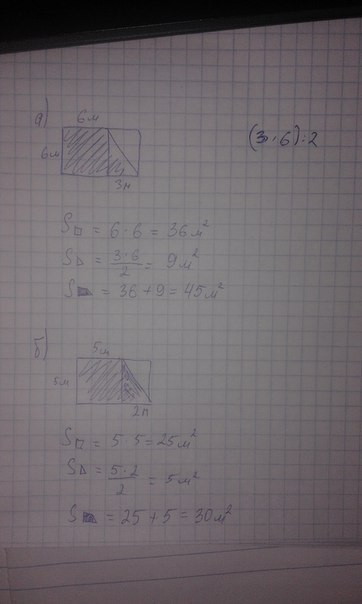 а)
6м
6м
3м
(3·6):2
S□ = 6·6 = 36м²
S△ = 3·6/2 = 9м²
S = 36+9=45м²
б)
5м
5м
2м
S□ = 5·5=25м²
S△ = 5·2/2 = 5м²
S = 25+5=30м²